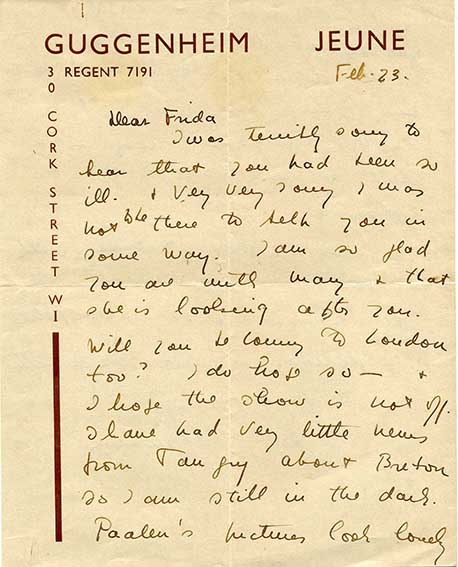 GUGGENHEIM JEUNE
3 REGENT 7191
0
CORK STREET W1
Feb. 23.
Dear Frida
I was terribly sorry to
hear that you had been so
ill. & very very sorry I was
not to be there to help you in
some way. I am so glad
you are with Mary & that
she is looking after you.
Will you be coming to London
too? I do hope so — &
I hope the show is not off.
I have had very little news
from Tanguy about Breton
so I am still in the dark.
Paalen's pictures look lovely